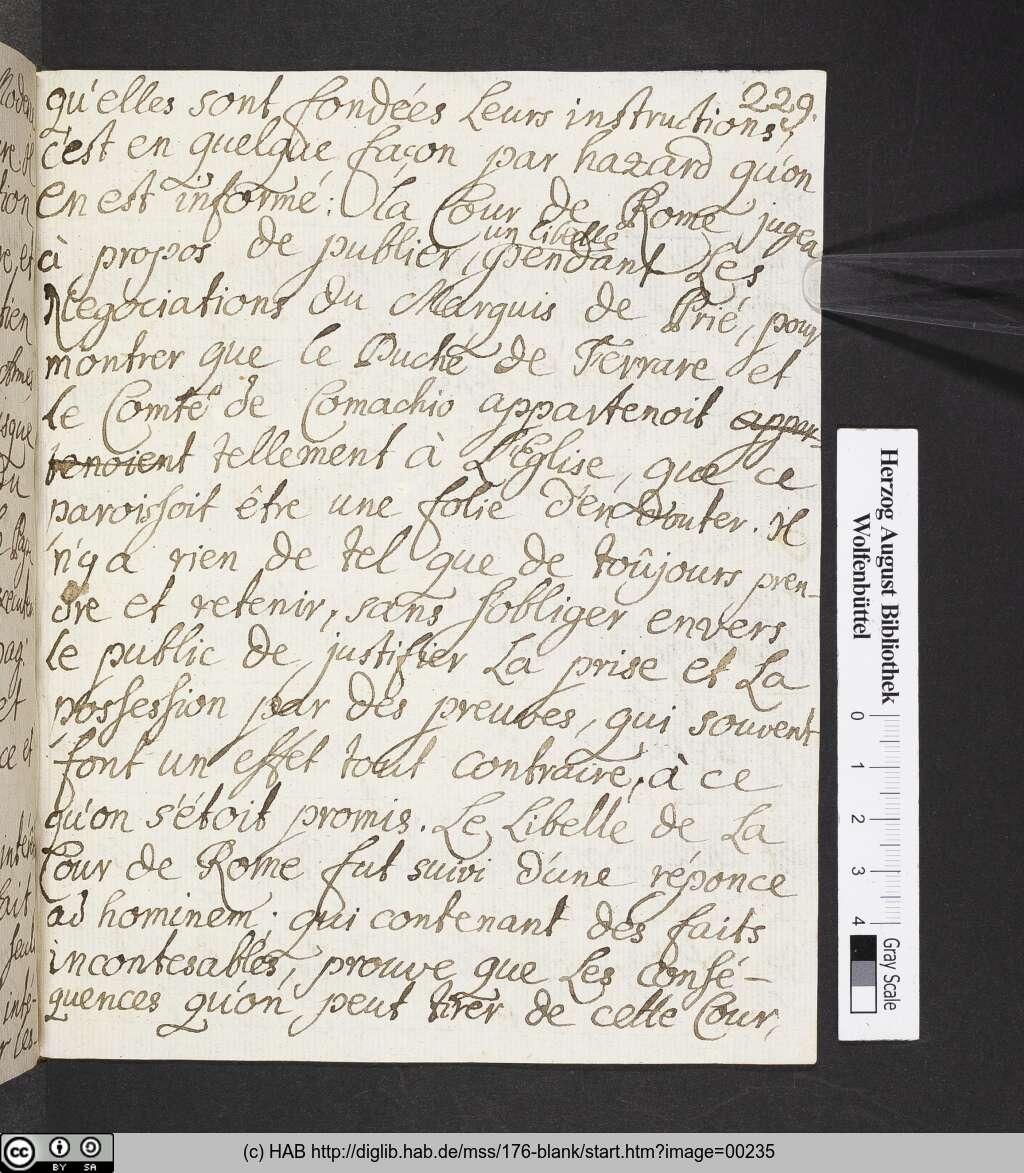 229.
qu'elles sont fondées leurs instructions;
c'est en quelque façon par hazard qu'on
en est informé: la Cour de Rome jugea
un libelle
à propos de publier, pendant les
Negociations du Marquis de Prié, pour
montrer que le Duché de Ferrare et
le Comté de Comachio appartenoit appar-
tenoient tellement à L'Eglise, que ce
paroissoit être une folie d'en douter. Il
n'y a rien de tel que de toûjours pren-
dre et retenir, sans s'obliger envers
le public de justifier la prise et la
possession par des preuves, qui souvent
font un effét tout contraire, à ce
qu'on s'étoit promis. Le Libelle de la
Cour de Rome fut suivi d'une réponce
ad hominem; qui contenant des faits
incontesables, prouve que les consé-
quences qu'on peut tirer de cette Cour,
Herzog August Bibliothek
Wolfenbüttel
0 1 2 3 4
Gray Scale
BY SA
(c) HAB http://diglib.hab.de/mss/176-blank/start.htm?image=00235